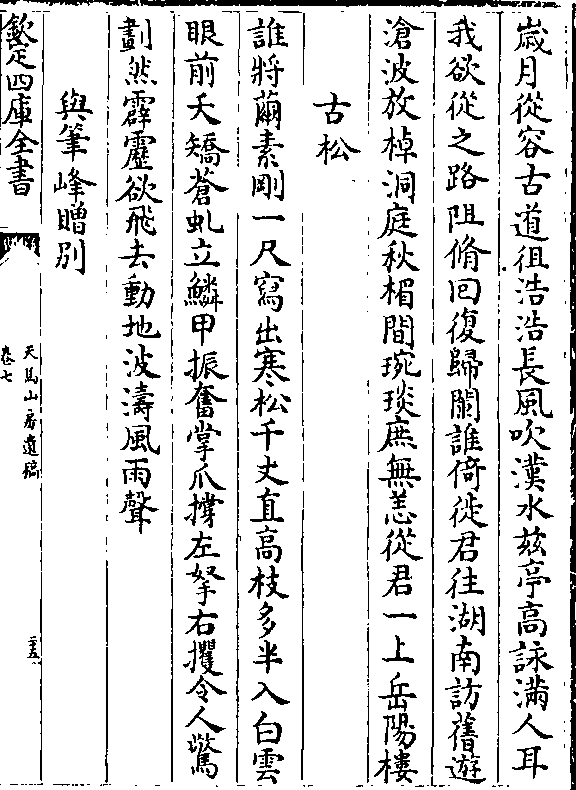 歳月從容古道徂浩浩長風吹漢水兹亭高詠滿人耳
我欲從之路阻脩回復歸闗誰倚從君往湖南訪舊遊
滄波放棹洞庭秋楣間琬琰庶無恙從君一上岳陽樓
古松
誰將繭素剛一尺寫出寒松千丈直高枝多半入白雲
眼前夭矯蒼虬立鱗甲振奮掌爪撐左拏右攫令人驚
劃然霹靂欲飛去動地波濤風雨聲
與筆峰贈别
欽定四庫全書
天馬山房遺稿
卷七
三五